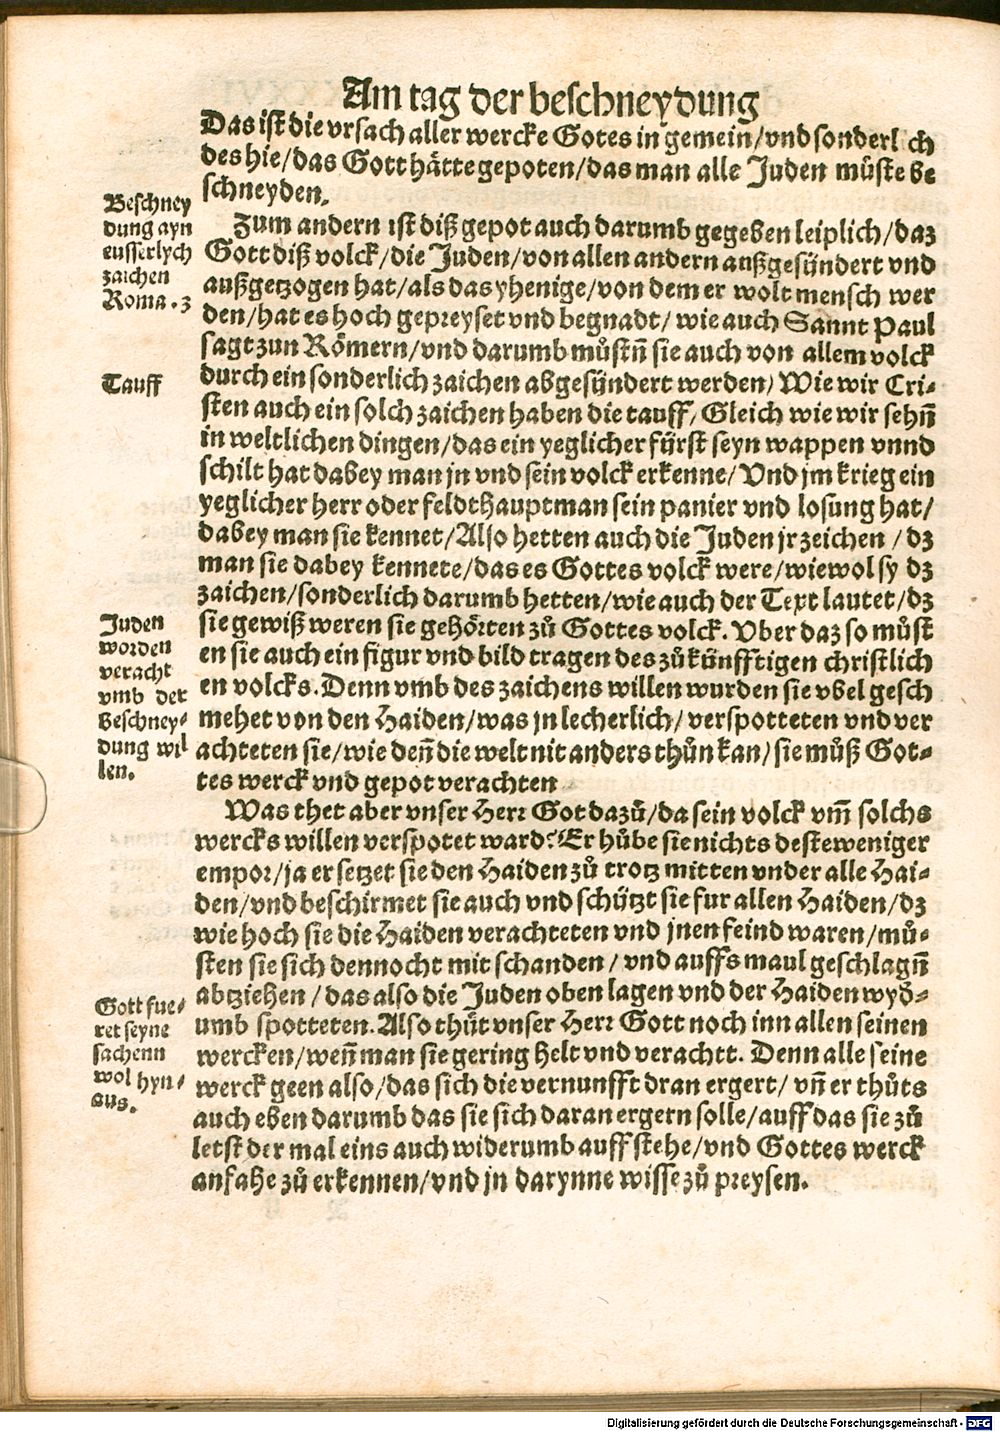 Am tag der beschneydung
Das ist die vrsach aller wercke Gotes in gemein/vnd sonderl ch
des hie/das Gott hätte gepoten/das man alle Juden müste be
schneyden.
Beschney
dung ayn
eusserlych
zaichen
Roma. 3
Zum andern ist diß gepot auch darumb gegeben leiplich/daz
Gott diß volck/die Juden/von allen andern außgesündert vnd
außgetzogen hat/als das yhenige/von dem er wolt mensch wer
den/hat es hoch gepreyset vnd begnadt/ wie auch Sannt Paul
sagt zun Römern/vnd darumb můstn̄ sie auch von allem volck
Tauff
durch ein sonderlich zaichen abgesündert werden/ Wie wir Cri-
sten auch ein solch zaichen haben die tauff/ Gleich wie wir sehn̄
in weltlichen dingen/das ein yeglicher fürst seyn wappen vnnd
schilt hat dabey man jn vnd sein volck erkenne/ Vnd jm krieg ein
yeglicher herr oder feldthauptman sein panier vnd losung hat/
dabey man sie kennet/Also hetten auch die Juden jr zeichen / dz
man sie dabey kennete/das es Gottes volck were/wiewol sy dz
zaichen/sonderlich darumb hetten/wie auch der Text lautet/dz
Juden
worden
veracht
vmb der
Beschney-
dung wil
len.
sie gewiß weren sie gehörten zů Gottes volck. Vber daz so můst
en sie auch ein figur vnd bild tragen des zůkünfftigen christlich
en volcks. Denn vmb des zaichens willen wurden sie vbel gesch
mehet von den Haiden/was jn lecherlich/ verspotteten vnd ver
achteten sie/wie den̄ die welt nit anders thůn kan/ sie můß Got-
tes werck vnd gepot verachten
Was thet aber vnser Herr Got dazů/da sein volck vm̄ solchs
wercks willen verspotet ward? Er hůbe sie nichts desteweniger
empor/ja er setzet sie den Haiden zů trotz mitten vnder alle Hai-
den/vnd beschirmet sie auch vnd schützt sie fur allen Haiden/dz
wie hoch sie die Haiden verachteten vnd jnen feind waren/mů-
sten sie sich dennocht mit schanden / vnd auffs maul geschlagn̄
Gott fue-
ret seyne
sachenn
wol hyn-
aus.
abtziehen / das also die Juden oben lagen vnd der Haiden wyd-
umb spotteten. Also thůt vnser Herr Gott noch inn allen seinen
wercken/wen̄ man sie gering helt vnd verachtt. Denn alle seine
werck geen also/das sich die vernunfft dran ergert/ vn̄ er thůts
auch eben darumb das sie sich daran ergern solle/auff das sie zů
letst der mal eins auch widerumb auff stehe/vnd Gottes werck
anfahe zů erkennen/vnd jn darynne wisse zů preysen.
Digitalisierung gefördert durch die Deutsche Forschungsgemeinschaft - DFG